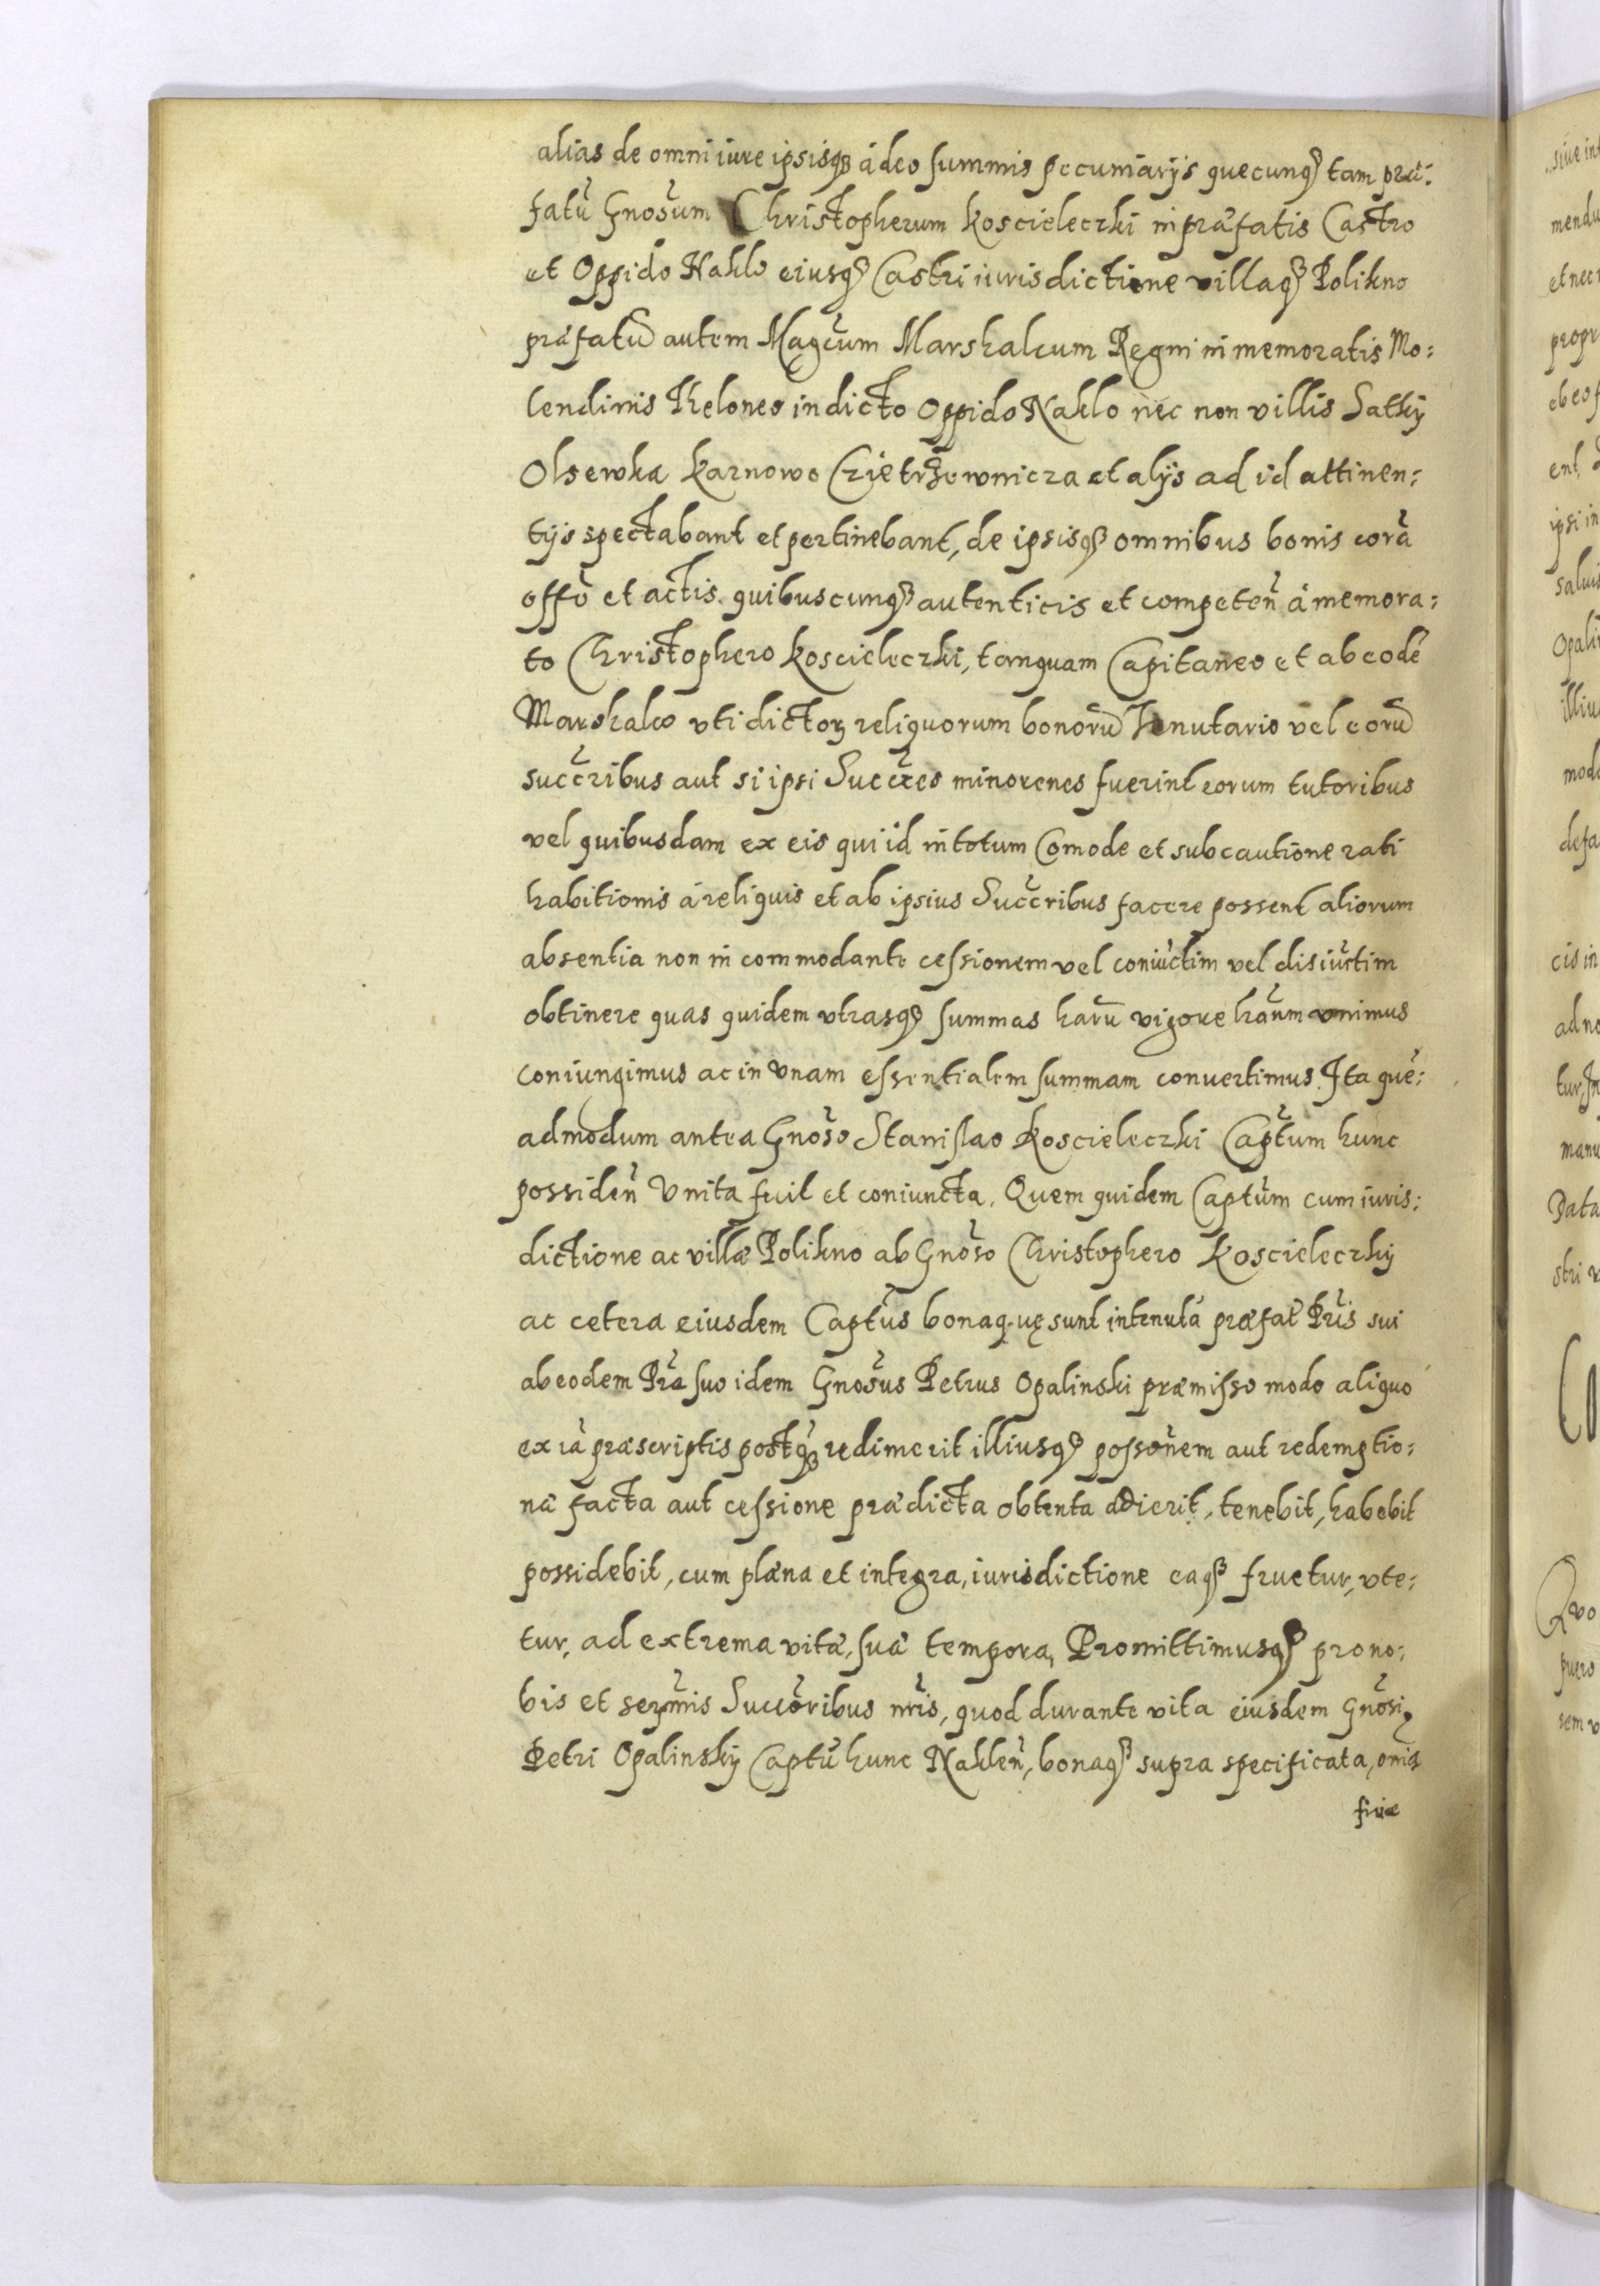 alias de omni iure ipsisq₃ ádeo summis pecuniarijs quecunq₃ tam præ:
fatũ Gnosum Christopherum Koscieleczki in præfatis Castro
et Oppido Naklo eiusq₃ Castri iurisdictione villaq₃ Polikno
præfatũ autem Magcum Marshalcum Regni in memoratis Mo:
lendinis Theloneo in dicto Oppido Naklo nec non villis Satky
Olsewka Karnowo Czietrzewnicza et alijs ad id attinen:
tijs spectabant et pertinebant, de ipsisq₃ omnibus bonis corã
offõ et actis quibuscunq₃ autenticis et competeñ á memora:
to Christophero Koscieleczki, tanquam Capitaneo et ab eodẽ
Marshalco vti dictorꝝ reliquorum bonorũ Tenutario vel eorũ
succribus aut si ipsi Succres minorenes fuerint eorum tutoribus
vel quibusdam ex eis qui id in totum Comode et sub cautione rati
habitionis á reliquis et ab ipsius Succribus facere possent aliorum
absentia non in commodante cessionem vel coniũctim vel disiũctim
obtinere quas quidem vtrasq₃ summas harũ vigore hãum vnimus
coniungimus ac in vnam essentialem summam conuertimus. Ita quẽ:
admodum antea Gnoso Stanislao Koscieleczki Captum hunc
possideñ Vnita fuit et coniuncta. Quem quidem Captum cum iuris:
dictione ac villæ Polikno ab Gnoso Christophero Koscieleczky
ac cetera eiusdem Captus bonaq. uę sunt in tenuta præfat Pris sui
ab eodem Pre suo idem Gnosus Petrus Opalinski præmisso modo aliquo
ex iã præscriptis postq₃ redimerit illiusq₃ possonem aut redemptio:
næ facta aut cessione prædicta obtenta adierit, tenebit, habebit
possidebit, cum plæna et integra, iurisdictione eaq₃ fruetur, vte:
tur, ad extrema vitæ, suæ tempora, Promittimusq₃ pro no:
bis et sermis Succoribus nris, quod durante vita eiusdem Gnosi,
Petri Opalinsky Captũ hunc Nakleñ, bonaq₃ supra specificata, omia
siue